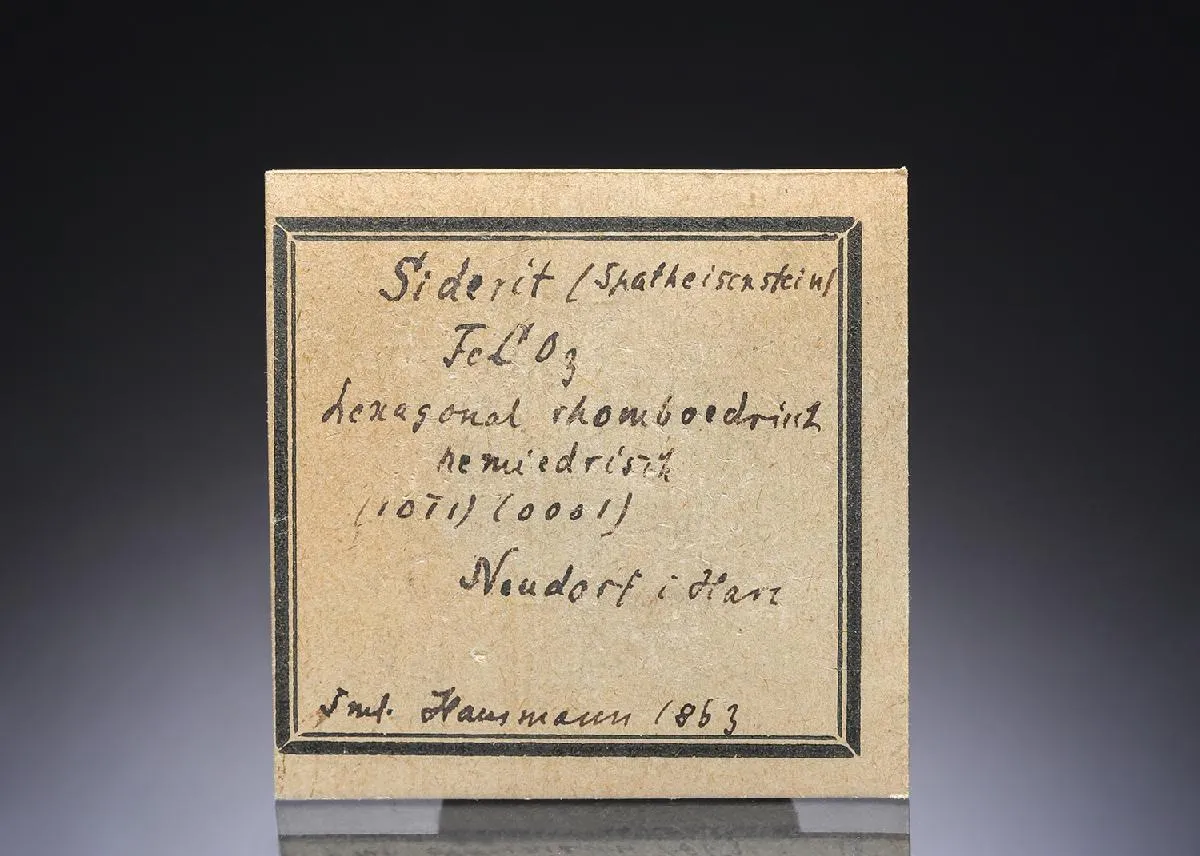 Siderit (Spatheisenstein)
FeCO3
hexagonal rhomboedrisch
hemiedrisch
(101̄1) (0001)
Neudorf i Harz
Sml. Hausmann 1863